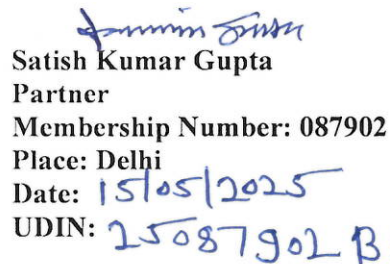 Satish Kumar Gupta
Partner
Membership Number: 087902
Place: Delhi
Date: 15/05/2025
UDIN: 25087902 B